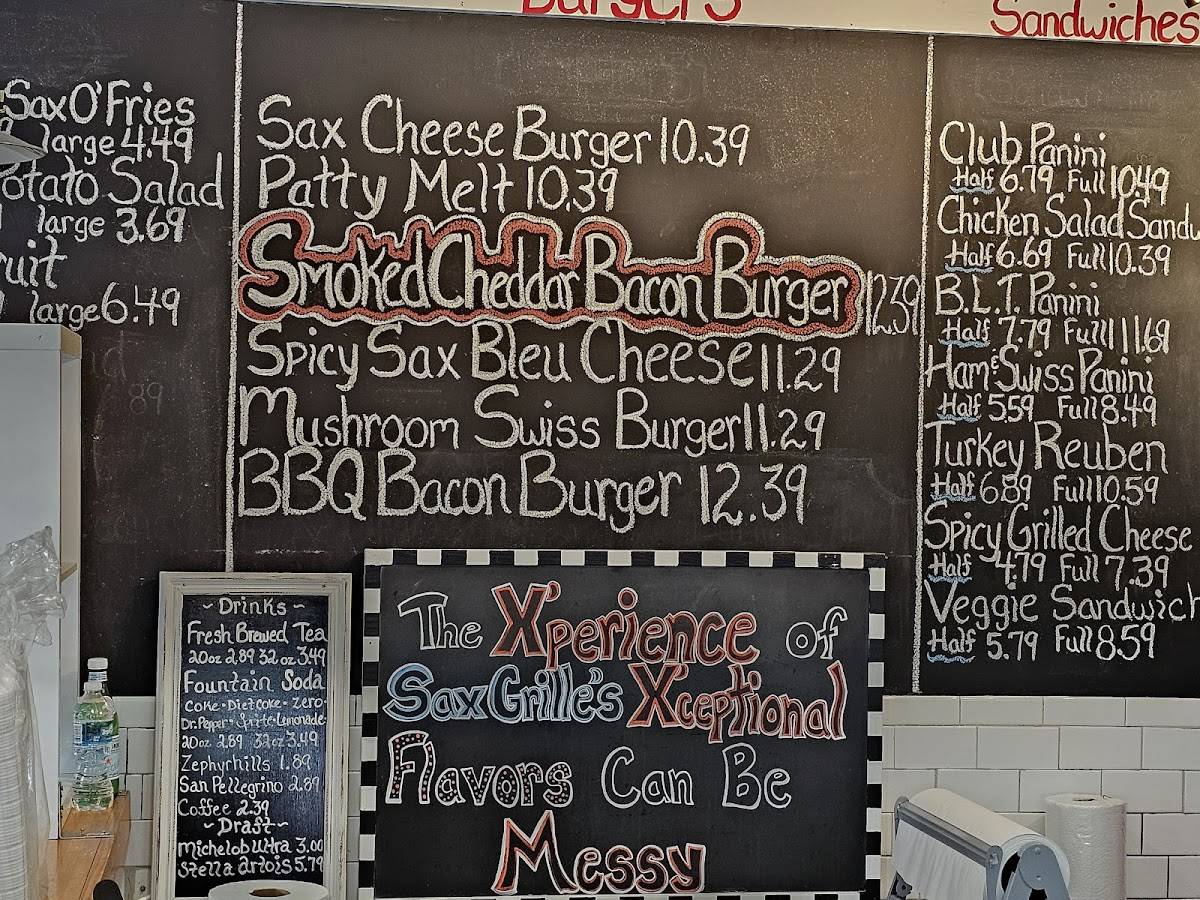 Burgers
Sandwiches
Sax O'Fries
large 4.49
Potato Salad
large 3.69
large 6.49
Sax Cheese Burger 10.39
Patty Melt 10.39
Smoked Cheddar Bacon Burger 12.39
Spicy Sax Bleu Cheese 11.29
Mushroom Swiss Burger 11.29
BBQ Bacon Burger 12.39
Club Panini
Half 6.79 Full 10.49
Chicken Salad Sandw
Half 6.69 Full 10.39
B.L.T. Panini
Half 7.79 Full 11.69
Ham & Swiss Panini
Half 5.59 Full 8.49
Turkey Reuben
Half 6.89 Full 10.59
Spicy Grilled Cheese
Half 4.79 Full 7.39
Veggie Sandwich
Half 5.79 Full 8.59
~Drinks~
Fresh Brewed Tea
20oz 2.89 32oz 3.49
Fountain Soda
Coke•Diet Coke•Zero•
Dr. Pepper•Sprite•Lemonade•
20oz 2.89 32oz 3.49
Zephyrhills 1.89
San Pellegrino 2.89
Coffee 2.39
~Draft~
Michelob Ultra 3.00
Stella Artois 5.79
The X'perience of
Sax Grille's X'ceptional
Flavors Can Be
Messy